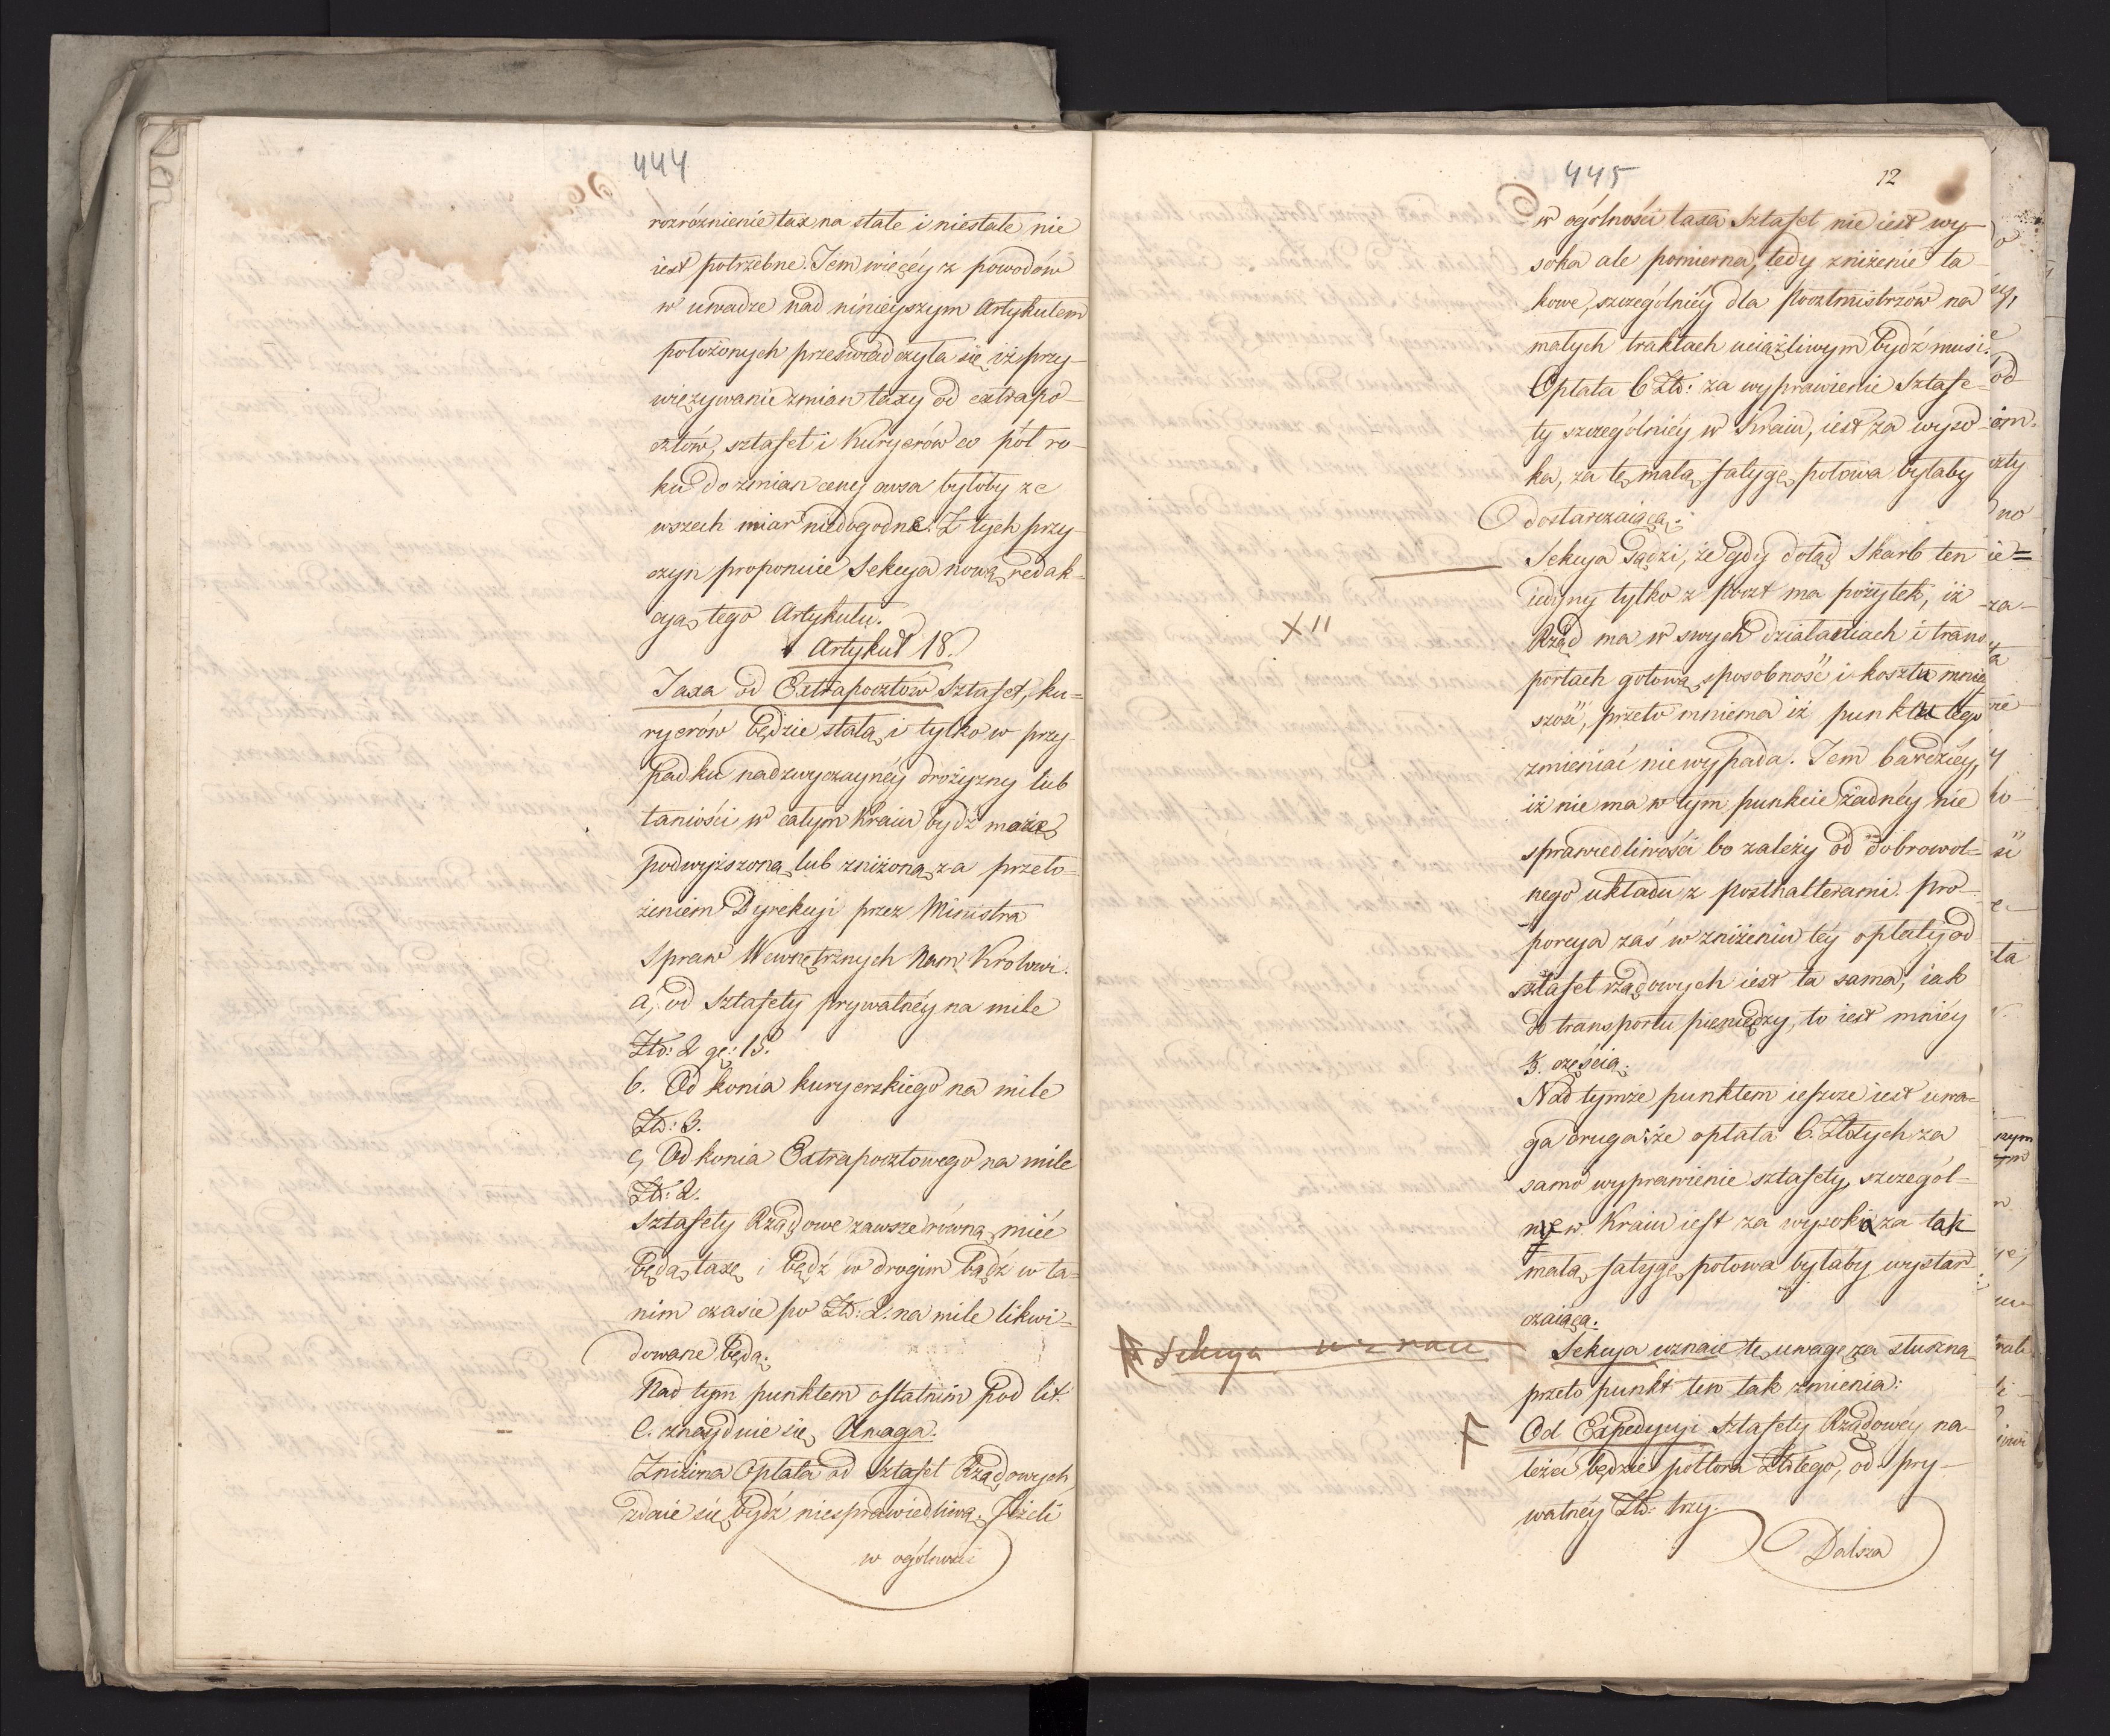 444
rozróżnienie tax na stałe i niestałe nie
iest potrzebne. Tem więcéy z powodów
w uwadze nad ninieyszym Artykułem
położonych przeświadczyła się, iż przy-
więzywanie zmian taxy od extrapo-
cztów, sztafet i Kuryerów co pół ro-
ku do zmian ceny owsa byłoby ze
wszech miar niedogodne. Z tych przy-
czyn proponuie Sekcya nową redak-
cyą tego Artykułu.
Artykuł 18.
Taxa od Extrapocztów Sztafet, ku=
ryerów będzie stałą i tylko w przy-
padku nadzwyczaynéy drożyzny lub
taniości w całym Kraiu bydź może
podwyższoną lub zniżoną za przeło-
żeniem Dyrekcyi przez Ministra
Spraw Wewnętrznych Nam. Krolowi.
a, od Sztafety prywatnéy na milę
Złł: 2 gr: 15.
b. Od konia kuryerskiego na milę
Złł: 3.
c, Od konia Extrapocztowego na milę
Złł: 2.
Sztafety Rządowe zawsze równą mieć
będą taxę i bądź w drogim bądź w ta=
nim czasie po Złł: 2. na milę likwi=
dowane będą.
Nad tym punktem ostatnim pod lit.
C. znayduie się Uwaga.
Zniżona Opłata od Sztafet Rządowych,
zdaie się bydź niesprawiedliwą. Jeżeli
w ogólności
445
12
w ogólności taxa Sztafet nie iest wy-
soka ale pomierna, tedy zniżenie ta-
kowe, szczególniéy dla Pocztmistrzów na
małych traktach uciążliwym bydź musi.
Opłata 6 Złł: za wyprawienie Sztafe-
ty szczególniéy w Kraiu, iest za wyso-
ka, za tę małą fatygę połowa byłaby
dostarczaiącą.
Sekcya sądzi, że gdy dotąd Skarb ten
iedyny tylko z poczt ma pożytek, iż
X II
Rząd ma w swych działaniach i trans-
portach gotową sposobność i kosztu mniey
szość, przeto mniema iż punktu tego
zmieniać niewypada. Tem bardziéy,
iż nie ma w tym punkcie żadnéy nie
sprawiedliwości bo zależy od dobrowol=
nego układu z posthalterami. pro-
porcya zaś w zniżeniu téy opłaty od
sztafet rządowych iest ta sama, iak
do transportu pieniędzy, to iest mniéy
3. częścią.
Nad tymże punktem ieszcze iest uwa=
ga druga: że opłata 6. Złotych za
samo wyprawienie sztafety, szczegól-
nie w Kraiu iest za wysoka za tak
małą fatygę, połowa byłaby wystar-
czaiącą.
Sekcya uznaie
Sekcya uznaie tę uwagę za słuszną
przeto punkt ten tak zmienia:
Od Expedycyi Sztafety Rządowéy na-
leżeć będzie półtora Złotego, od pry-
watnéy Złł: trzy.
Dalsza